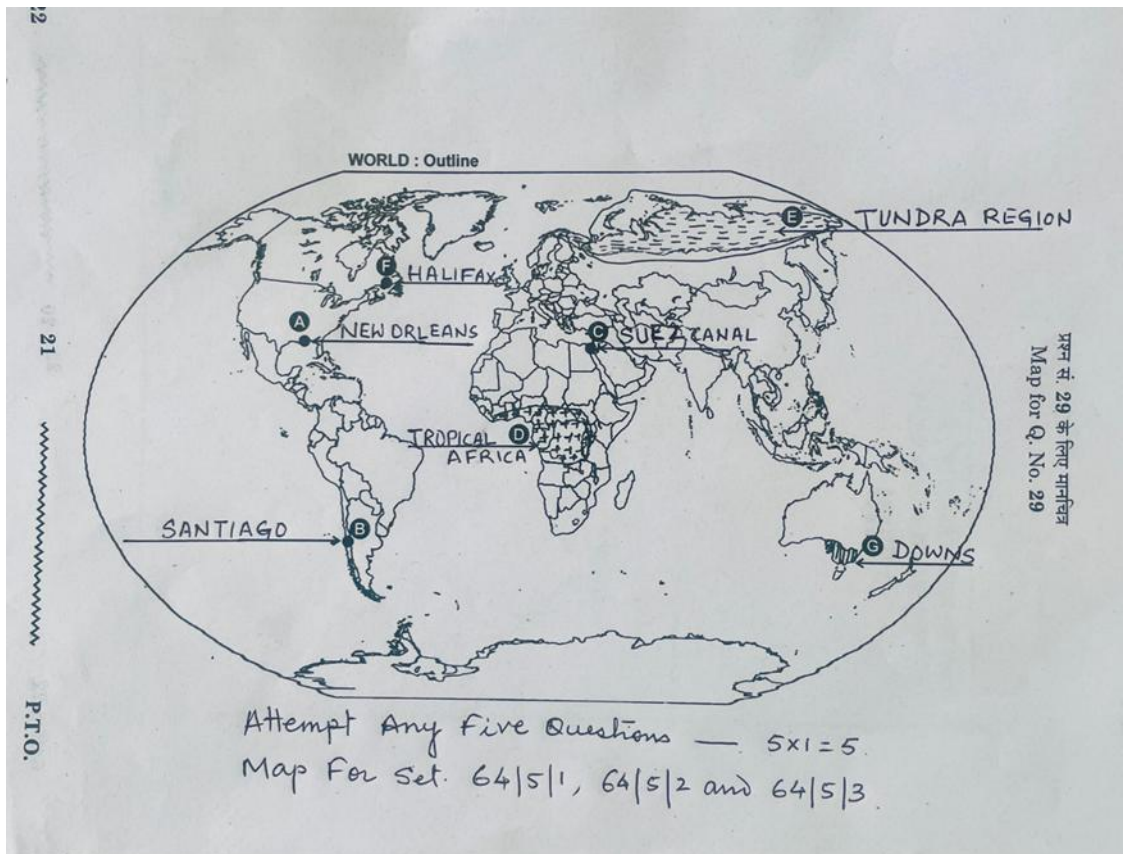 22
21
P.T.O.
WORLD : Outline
E
TUNDRA REGION
F
HALIFAX
A
NEW ORLEANS
C
SUEZ CANAL
D
TROPICAL
AFRICA
B
SANTIAGO
G
DOWNS
प्रश्न सं. 29 के लिए मानचित्र
Map for Q. No. 29
Attempt Any Five Questions — 5x1=5.
Map For Set. 64|5|1, 64|5|2 and 64|5|3